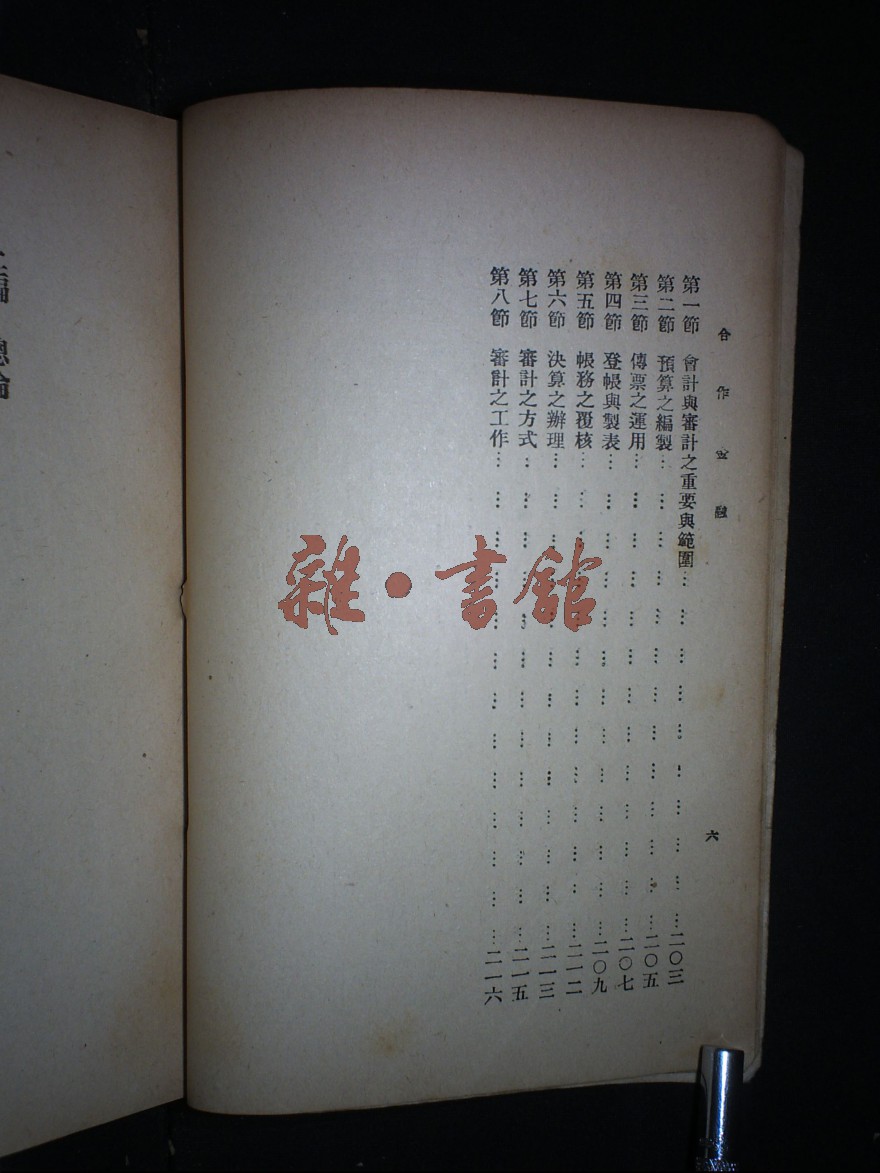 合作金融
六
第一節 會計與審計之重要與範圍……二〇三
第二節 預算之編製……二〇五
第三節 傳票之運用……二〇七
第四節 登帳與製表……二〇九
第五節 帳務之覆核……二一二
第六節 決算之辦理……二一三
第七節 審計之方式……二一五
第八節 審計之工作……二一六
雜·書館
編 總論